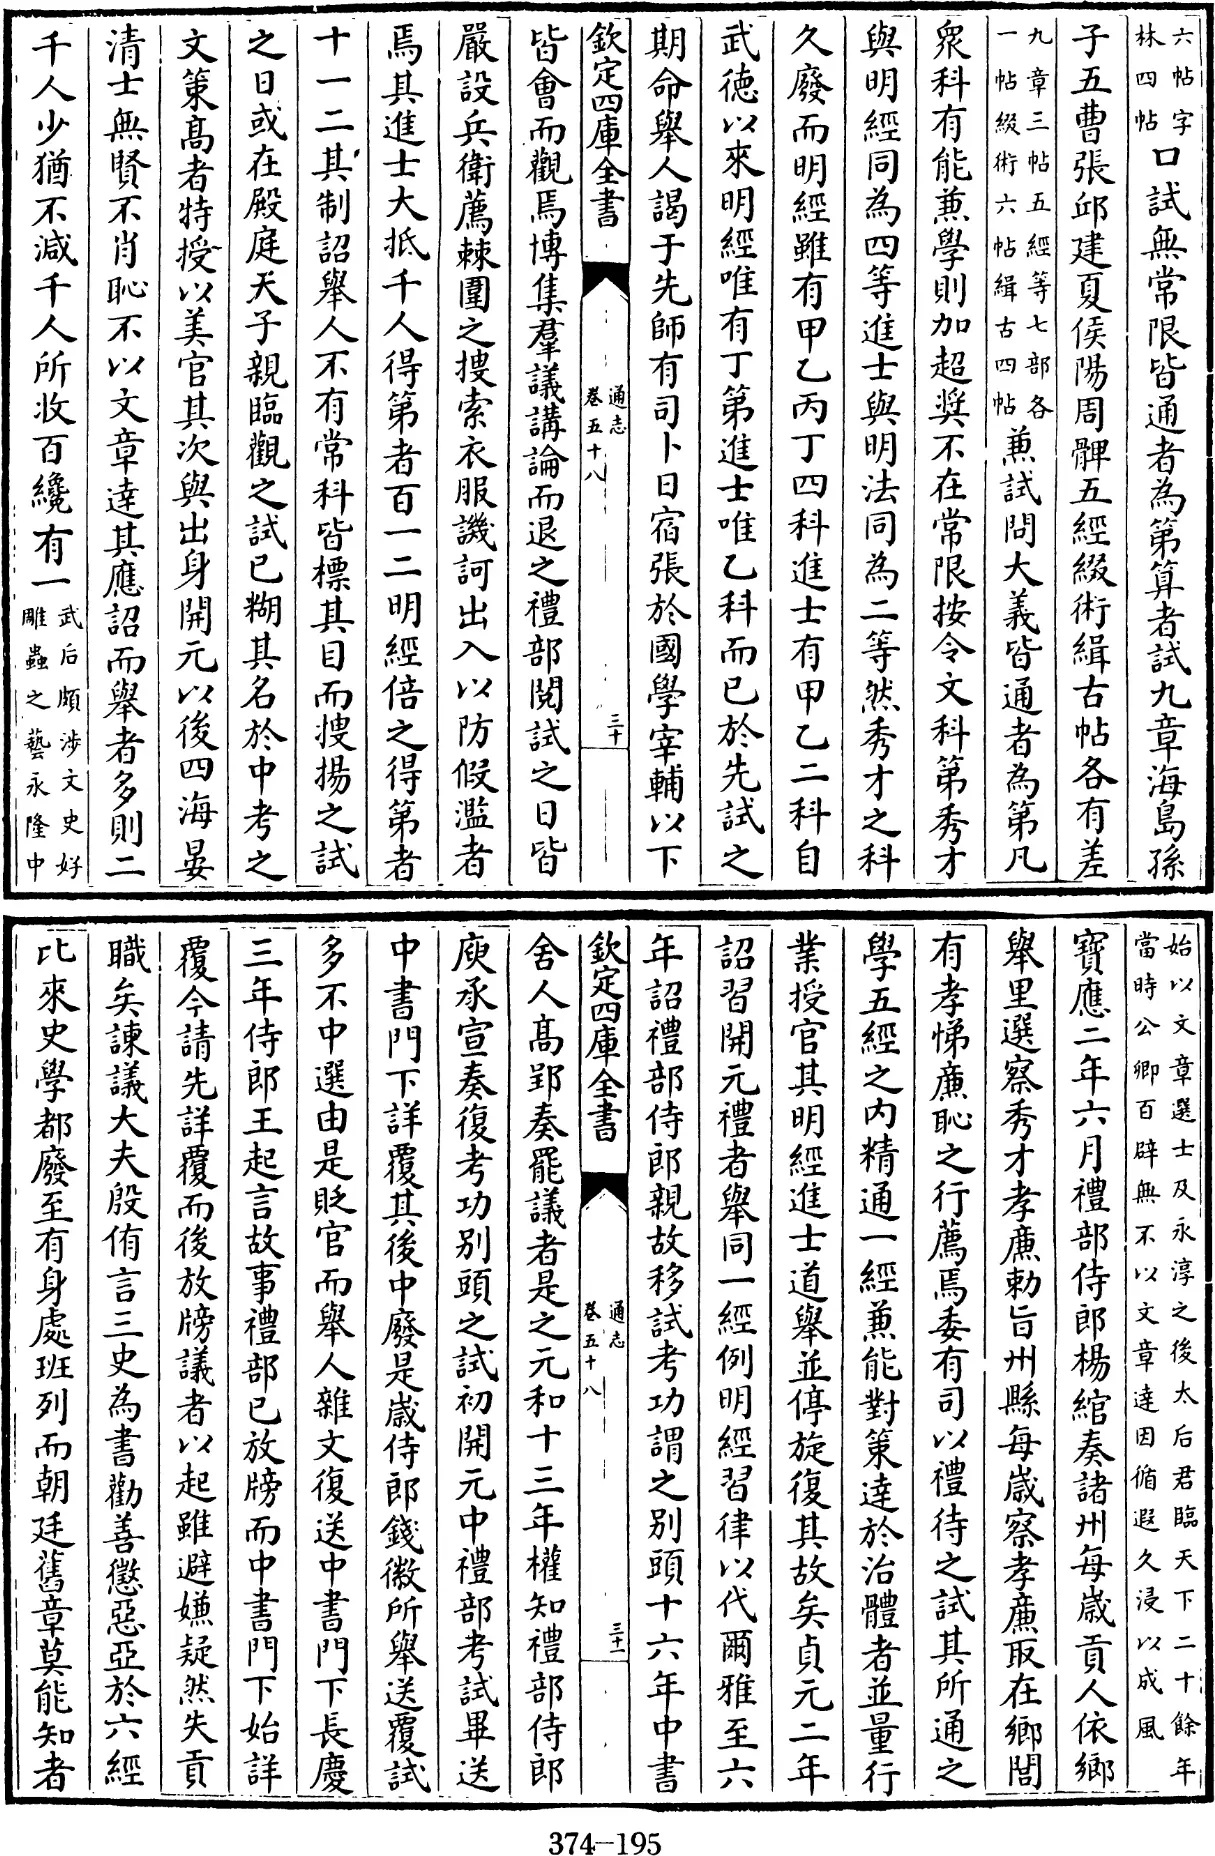 六帖字林四帖口試無常限皆通者為第算者試九章海島孫
子五曹張邱建夏侯陽周髀五經綴術緝古帖各有差
九章三帖五經等七部各一帖綴術六帖緝古四帖兼試問大義皆通者為第凡
衆科有能兼學則加超奨不在常限按令文科第秀才
與明經同為四等進士與明法同為二等然秀才之科
久廢而明經雖有甲乙丙丁四科進士有甲乙二科自
武德以來明經唯有丁第進士唯乙科而已於先試之
期命舉人謁于先師有司卜日宿張於國學宰輔以下
欽定四庫全書
通志
卷五十八
三十
皆會而觀焉博集羣議講論而退之禮部閱試之日皆
嚴設兵衛薦棘圍之搜索衣服譏訶出入以防假濫者
焉其進士大抵千人得第者百一二明經倍之得第者
十一二其制詔舉人不有常科皆標其目而搜揚之試
之日或在殿庭天子親臨觀之試已糊其名於中考之
文策髙者特授以美官其次與出身開元以後四海晏
清士無賢不肖恥不以文章達其應詔而舉者多則二
千人少猶不減千人所收百纔有一武后頗涉文史好雕蟲之藝永隆中
始以文章選士及永淳之後太后君臨天下二十餘年當時公卿百辟無不以文章達因循遐久浸以成風
寶應二年六月禮部侍郎楊綰奏諸州每歲貢人依鄉
舉里選察秀才孝廉勅旨州縣每歲察孝廉取在鄉閭
有孝悌廉恥之行薦焉委有司以禮待之試其所通之
學五經之内精通一經兼能對策達於治體者並量行
業授官其明經進士道舉並停旋復其故矣貞元二年
詔習開元禮者舉同一經例明經習律以代爾雅至六
年詔禮部侍郎親故移試考功謂之别頭十六年中書
欽定四庫全書
通志
卷五十八
三十一
舍人髙郢奏罷議者是之元和十三年權知禮部侍郎
庾承宣奏復考功别頭之試初開元中禮部考試畢送
中書門下詳覆其後中廢是歲侍郎錢徽所舉送覆試
多不中選由是貶官而舉人雜文復送中書門下長慶
三年侍郎王起言故事禮部已放牓而中書門下始詳
覆今請先詳覆而後放牓議者以起雖避嫌疑然失貢
職矣諫議大夫殷侑言三史為書勸善懲惡亞於六經
比來史學都廢至有身處班列而朝廷舊章莫能知者
374-195